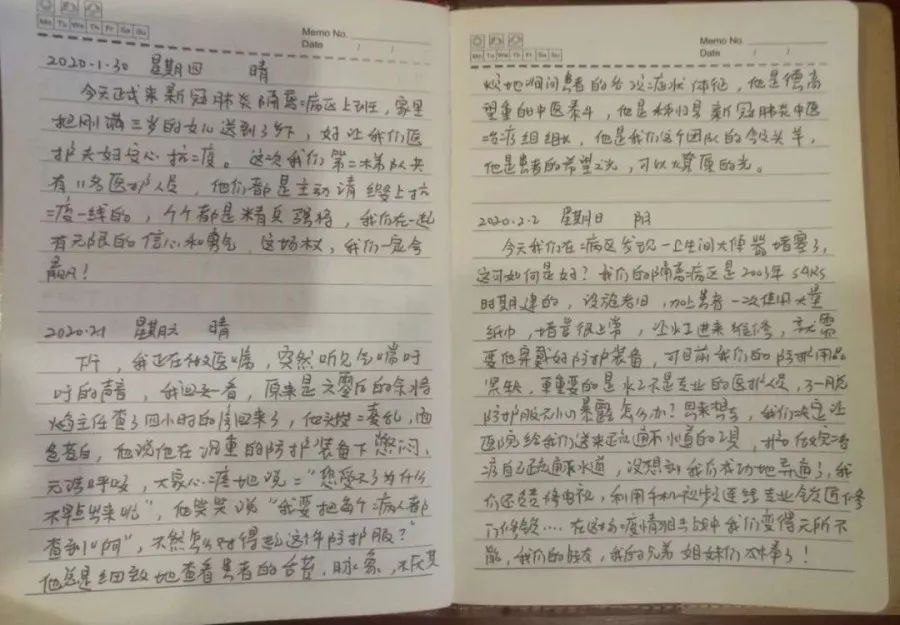 Mo Tu We Th Fr Sa Su
Memo No.
Date / /
2020.1.30 星期四 晴
今天正式来新冠肺炎隔离病区上班，家里
把刚满三岁的女儿送到乡下，好让我们医
护夫妇安心抗疫。这次我们第二梯队共
有11名医护人员，他们都是主动请缨上抗
疫一线的，个个都是精兵强将，我们在一起
有无限的信心和勇气，这场仗，我们一定会
赢！
2020.2.1 星期六 晴
下午，我正在做医嘱，突然听见气喘吁
吁的声音，我回头一看，原来是主任
查了四小时的房回来了，他头发凌乱，面
色苍白，他说他在沉重的防护装备下憋闷、
无法呼吸，大家心疼地说："您受不了为什么
不早点出来呢"，他笑笑说"我要把每个病人都
查到啊"，不然怎么对得起这件防护服？"
他总是细致地查看患者的舌苔、脉象，不厌其
Mo Tu We Th Fr Sa Su
Memo No.
Date / /
烦地询问患者的各次症状体征，他是德高
望重的中医泰斗，他是秭归县新冠肺炎中医
治疗组组长，他是我们这个团队的领头羊，
他是患者的希望之光，可以燎原的光。
2020.2.2 星期日 阴
今天我们在病区发现一卫生间大便器堵塞了，
这可如何是好？我们的隔离病区是2003年SARS
时期建的，设施老旧，加上患者一次使用大量
纸巾，堵是很正常，让水工进来维修，就需
要他穿戴好防护装备，可目前我们的防护用品
紧缺，更重要的是水工不是专业的医护人员，万一脱
防护服不小心暴露怎么办？思来想去，我们决定让
医院给我们送来疏通下水道的工具，
自己疏通下水道，没想到我们成功地弄通了，我
们还会修电视，利用手机
……在这场疫情阻击战中我们变得无所不
能，我们的战友，我的兄弟姐妹们太棒了！